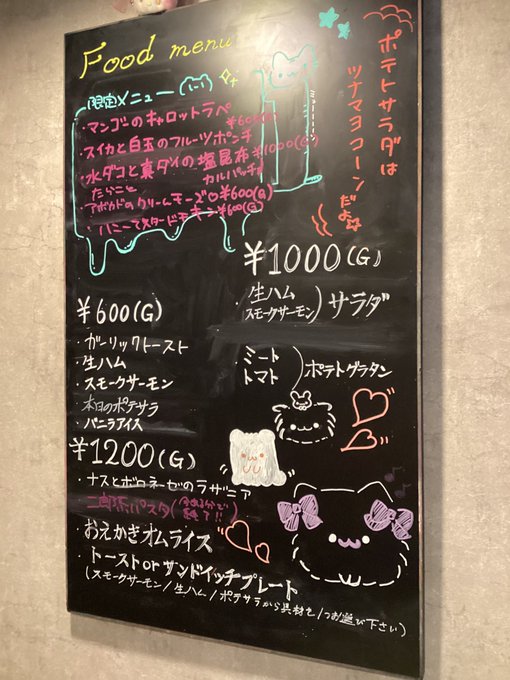 Food menu
限定メニュー
・マンゴのキャロットラペ ¥600(G)
・スイカと白玉のフルーツポンチ
・水ダコと真ダイの塩昆布カルパッチョ ¥1000(G)
・たらことアボカドのクリームチーズ ¥600(G)
・ハニーマスタードチキン ¥600(G)
ポテトサラダは
ツナマヨコーン
だよ
¥1000(G)
・生ハム
スモークサーモン)サラダ
・ミート
トマト)ポテトグラタン
¥600(G)
・ガーリックトースト
・生ハム
・スモークサーモン
本日のポテサラ
・バニラアイス
¥1200(G)
・ナスとボロネーゼのラザニア
二郎系パスタ(
終了!!)
・おえかきオムライス
・トーストorサンドイッチプレート
(スモークサーモン/生ハム/ポテサラから具材を1つお選び下さい)